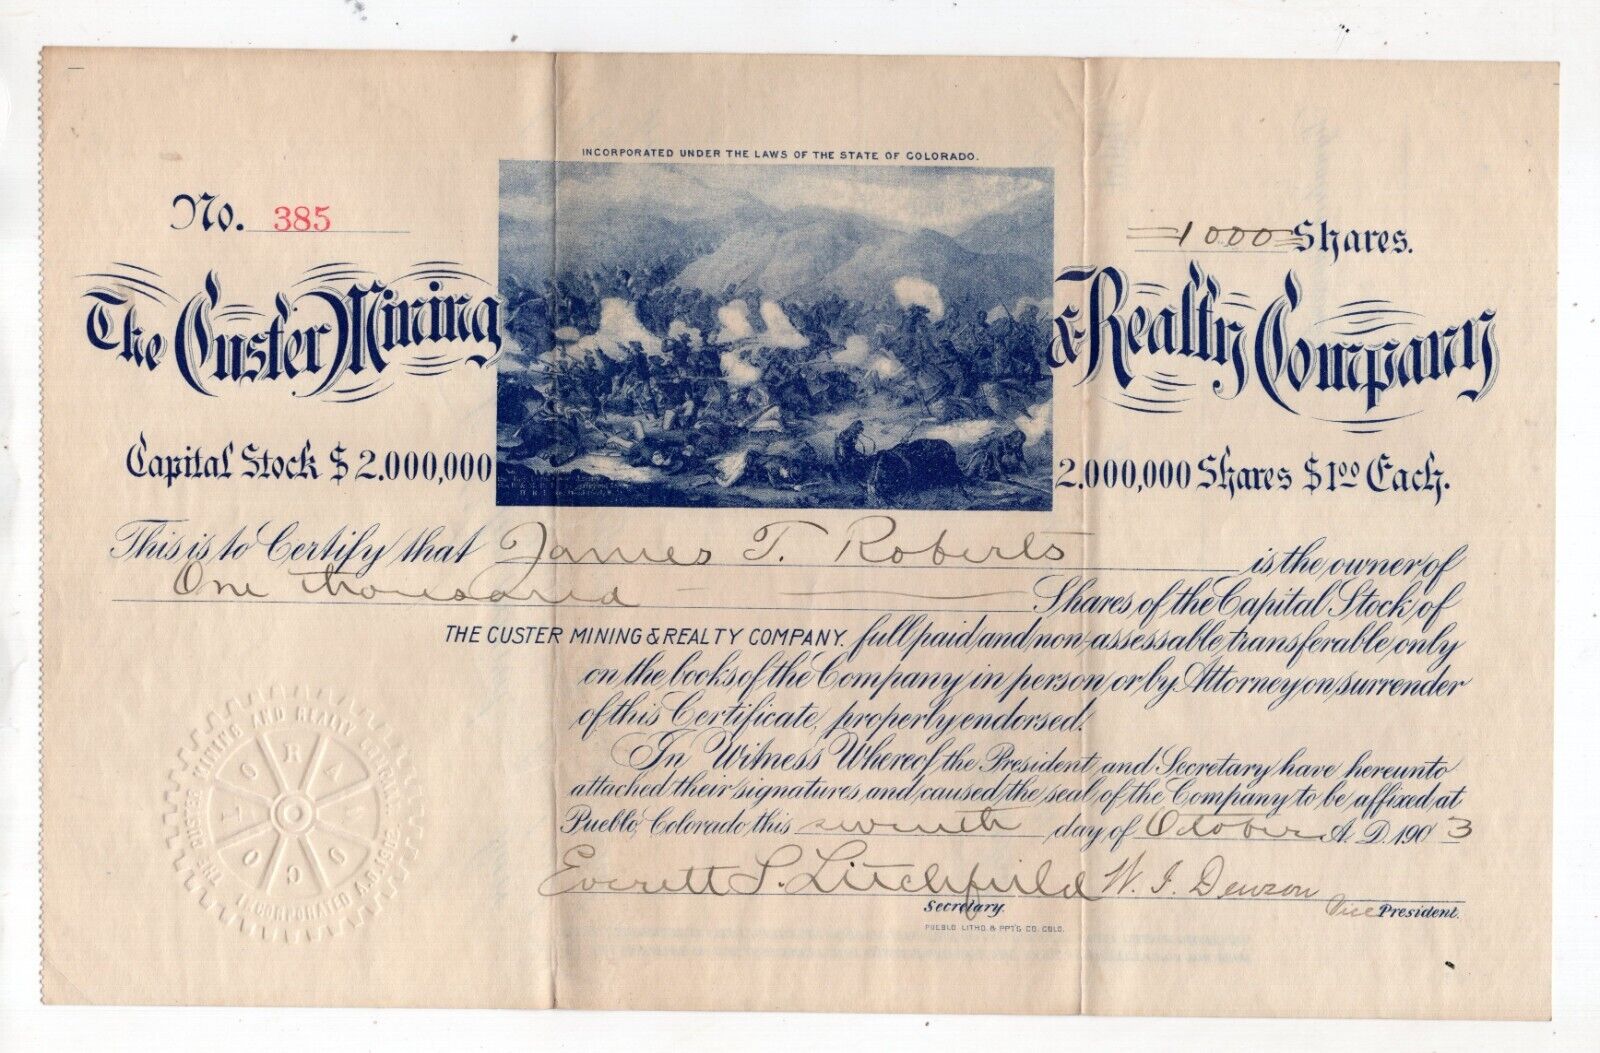 INCORPORATED UNDER THE LAWS OF THE STATE OF COLORADO.
No. 385
1000 Shares.
The Custer Mining & Realty Company
Capital Stock $2.000,000
2.000,000 Shares $1.00 Each.
This is to Certify that James T. Roberts is the owner of
One thousand Shares of the Capital Stock of
THE CUSTER MINING & REALTY COMPANY. full paid and non-assessable transferable only
on the books of the Company in person or by Attorney on surrender
of this Certificate, properly endorsed.
In Witness Whereof the President and Secretary have hereunto
attached their signatures and caused the seal of the Company to be affixed at
Pueblo, Colorado this seventh day of October A. D. 1903
Everett S. Litchfield W. I. Dewson
Secretary. Vice President.
PUEBLO LITHO. & PPT'G CO. COLO.
THE CUSTER MINING AND REALTY COMPANY
INCORPORATED
COLORADO